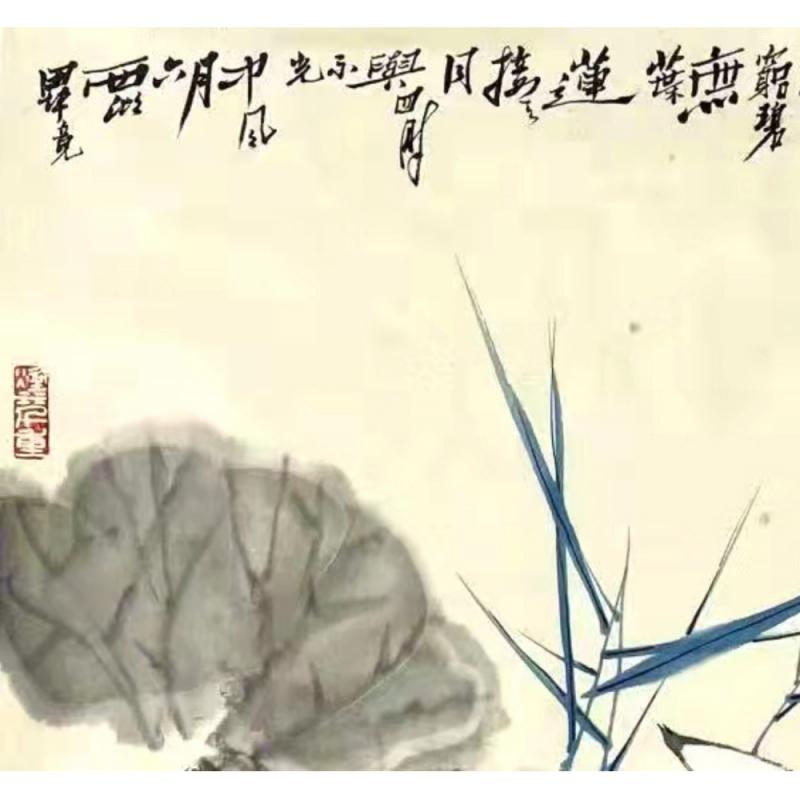 畢竟西湖六月中風光不與四時同接天蓮葉無窮碧